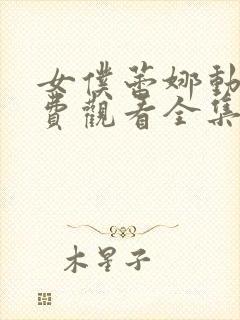 女僕蕾娜動
費觀看全集
木星子